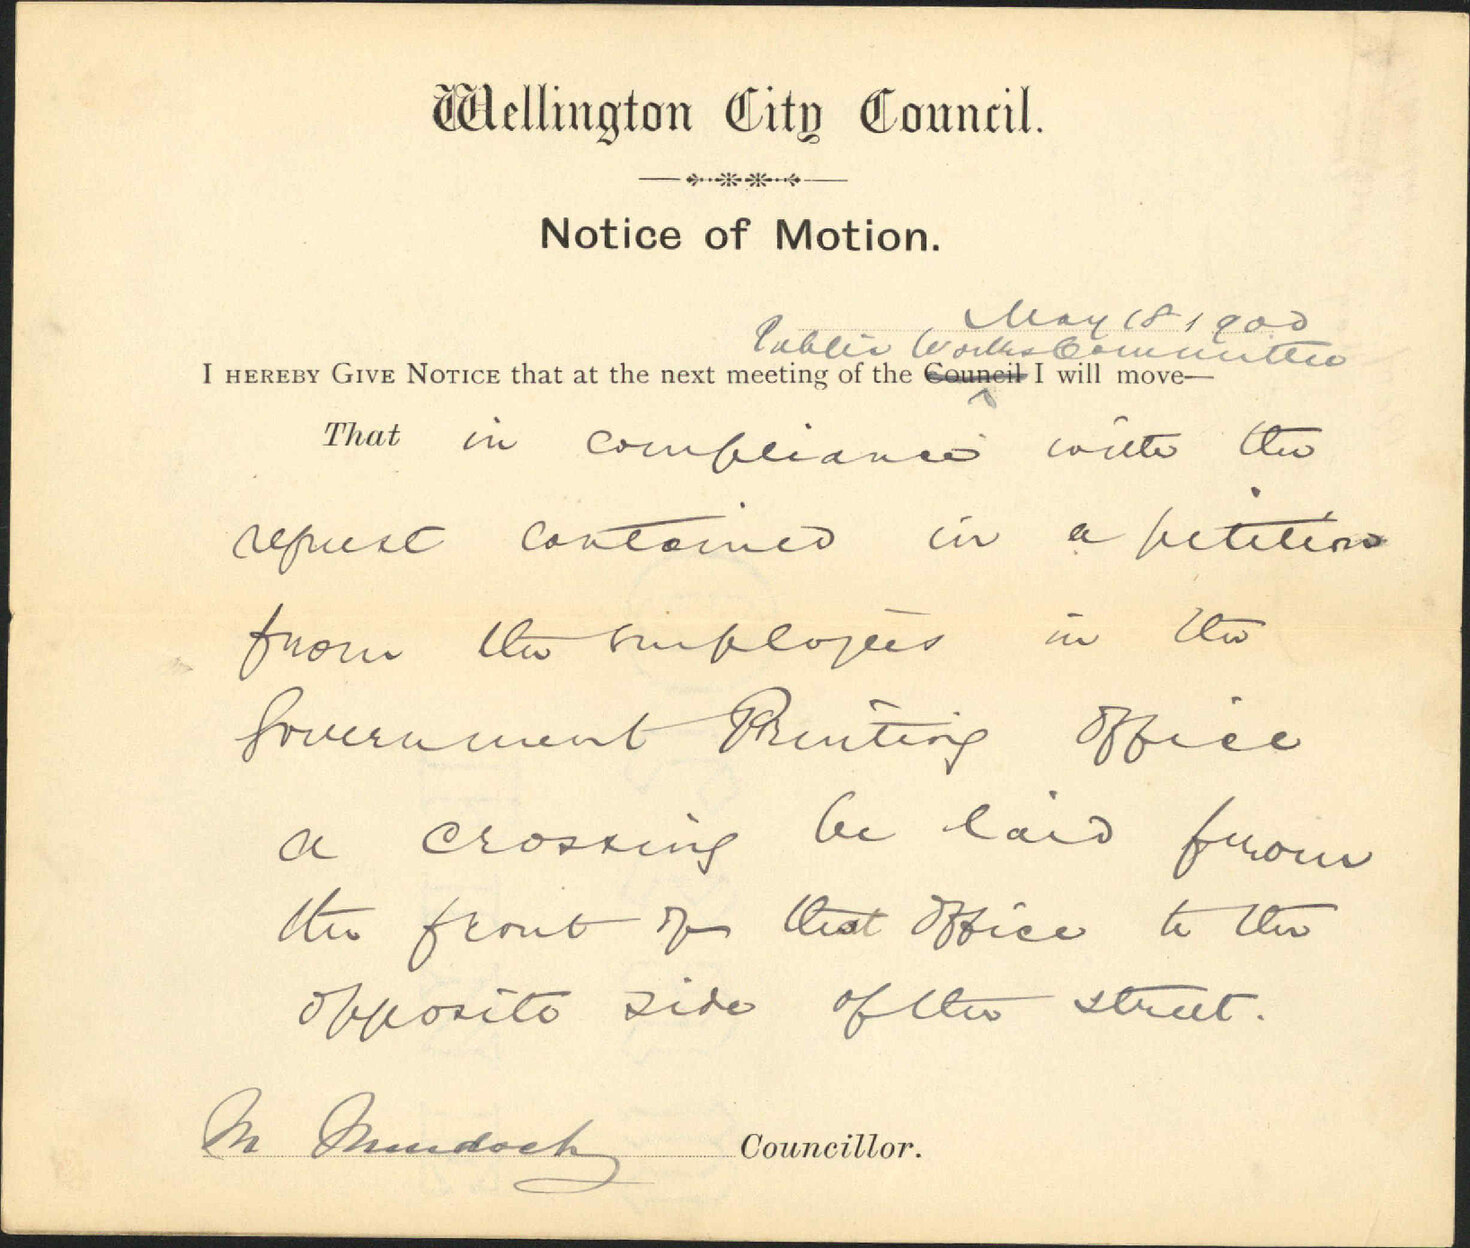 Wellington City Council.
Notice of Motion.
May 18 1900
Public Works Committee
I HEREBY GIVE NOTICE that at the next meeting of the Council I will move—
That in compliance with the
request contained in a petition
from the employees in the
Government Printing Office
a crossing be laid from
the front of that Office to the
opposite side of the street.
M Murdoch Councillor.